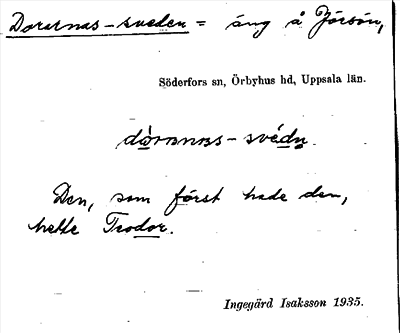 Dorarnas-sveden = äng å Jörsön,
Söderfors sn, Örbyhus hd, Uppsala län.
dòrarnas-svédn.
Den, som först hade den,
hette Teodor.
Ingegärd Isaksson 1935.